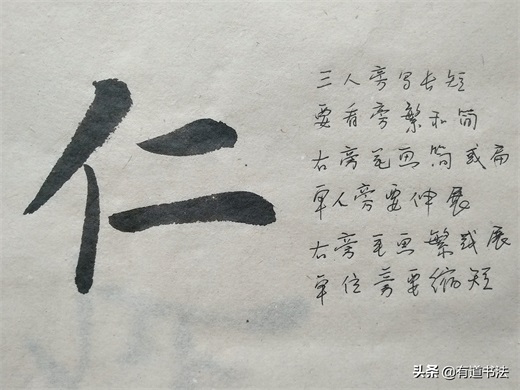 仁
三人旁写长短
要看旁繁和简
右旁笔画简或扁
单人旁要伸展
右旁笔画繁或展
单位旁要缩短
头条@有道书法